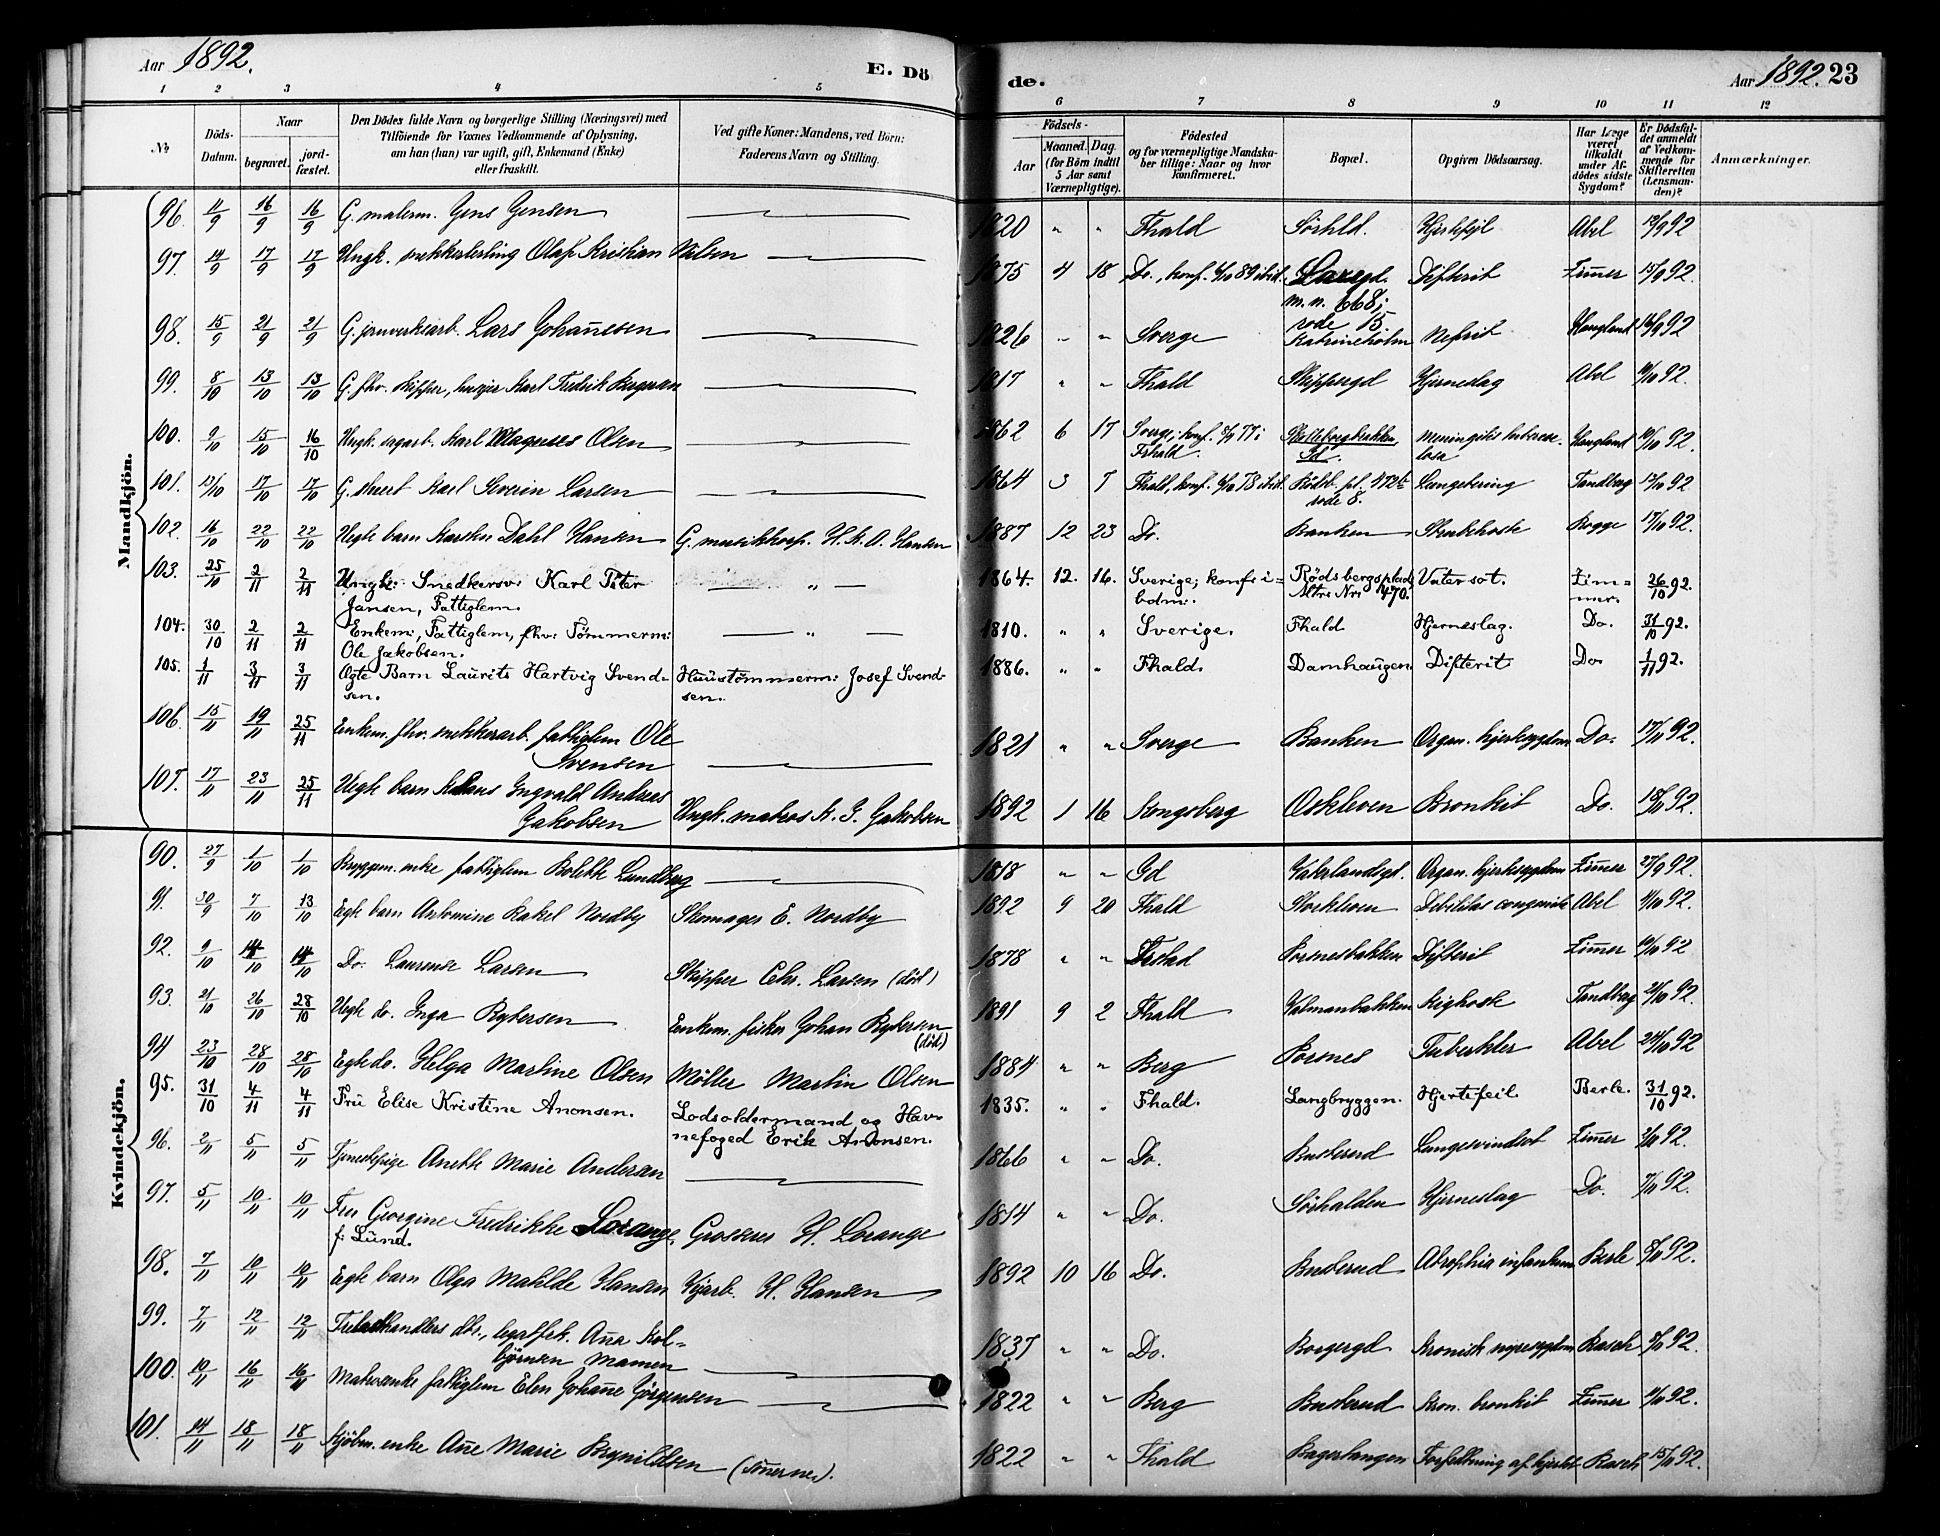 Aar 1892.
E. Dö
de.
Aar 1892. 23
1 2 3 4 5 6 7 8 9 10 11 12
No
Döds-Datum.
Naar
begravet.
jord-fæstet.
Den Dödes fulde Navn og borgerlige Stilling (Næringsvei) med
Tilföiende for Voxnes Vedkommende af Oplysning,
om han (hun) var ugift, gift, Enkemand (Enke)
eller fraskilt.
Ved gifte Koner: Mandens, ved Börn:
Faderens Navn og Stilling.
Födsels-
Aar
Maaned. Dag.
(for Börn indtil
5 Aar samt
Værnepligtige).
Födested
og for værnepligtige Mandska-
ber tillige: Naar og hvor
konfirmeret.
Bopæl.
Opgiven Dödsaarsag.
Har Læge
været
tilkaldt
under Af-
dödes sidste
Sygdom?
Er Dödsfal-
det anmeldt
af Vedkom-
mende for
Skifteretten
(Lensman-
den)?
Anmærkninger.
Mandkjön.
96. 11/9 16/9 16/9 G. malerm. Jens Jensen 1820 " " Fhald Sørhld. Hjertefejl Abel 12/9 92
97. 14/9 17/9 17/9 Ungk. Olaf Kristian Nilsen 1875 4 18 Do., konf. 89 ibid. m. n. 668; rode 15 Difterit Zimer 15/9 92
98. 15/9 21/9 21/9 G. Lars Johannesen 1826 " " Sverge Katrineholm Nefrit Haugland 16/9 92
99. 8/10 13/10 13/10 G. fhv. skipper, Karl Fredrik 1817 " " Fhald Skippergd Hjerneslag Abel 10/10 92.
100. 9/10 15/10 16/10 Ungk. sagarb. Karl Magnus Olsen 1862 6 17 Sverge; konf. 77 i Fhald. Id. meningitis tuberculosa Haugland 10/10 92.
101. 13/10 17/10 17/10 G. Karl Severin Larsen 1864 3 7 Fhald, konf. 78 ibid. rode 8. Tandberg 17/10 92
102. 16/10 22/10 22/10 Uegte barn Karsten Dahl Hansen G. H. K. O. Hansen 1887 12 23 Do. Banken Rogge 17/10 92.
103. 25/10 2/11 2/11 Ungk: Snedkersv: Karl Peter
Jansen, Fattiglem. " 1864. 12. 16. Sverige; konf: ibdm: Rødsbergsplad Mtr: Nr: 470. Vatersot. Zimmer. 26/10 92.
104. 30/10 2/11 2/11 Enkem:, Fattiglem, fhv: Tömmerm:
Ole Jakobsen. " 1810. " " Sverige. Fhald Hjerneslag. Do. 31/10 92.
105. 1/11 3/11 3/11 Ægte Barn Laurits Hartvig Svend-
sen. Huustömmerm: Josef Svend-
sen. 1886. " " Fhald. Damhaugen Difterit Do. 1/11 92.
106. 15/11 19/11 25/11 Enkem. fhv. snekkerarb. fattiglem Ole
Svensen 1821 " " Sverge Banken Organ. hjertesygdom Do. 17/11 92.
107. 17/11 23/11 25/11 Uegte barn Klaus Ingvald Andreas
Jakobsen Ungk. matros K. J. Jakobsen 1892 1 16 Kongsberg Oskleven Bronkit Do. 18/11 92.
Kvindekjön.
90. 27/9 1/10 1/10 Bryggm. enke fattiglem Bolette Lundberg 1818 " " Id Vaterlandsgd. Organ. hjertesygdom Zimer 27/9 92.
91. 30/9 7/10 13/10 Egte barn Antomine Rakel Nordby Skomager E. Nordby 1892 9 20 Fhald Storkleven Debilitas congenita Abel 1/10 92.
92. 9/10 14/10 14/10 Do. Laurense Larsen Skipper Chr. Larsen (död) 1878 " " Porsnesbakken Difterit Zimer 10/10 92
93. 21/10 26/10 28/10 Uegte do. Inga Rybersen Enkem. fisker Johan Rybersen (död) 1891 9 2 Fhald Valmanbakken Kighoste Tandberg 21/10 92.
94 23/10 28/10 28/10 Egte do. Helga Martine Olsen Møller Martin Olsen 1884 " " Berg Porsnes Tuberkler Abel 24/10 92
95. 31/10 4/11 4/11 Fru Elise Kristine Anonsen. Lodsoldermand og Hav-
nefoged Erik Anonsen. 1835. " " Fhald. Langbryggen. Hjertefeil. Berle. 31/10 92.
96. 2/11 5/11 5/11 Tjenestepige Anette Marie Andersen 1866 " " Do. Busterud Lungesvindsot Zimer 2/11 92.
97. 5/11 10/11 10/11 Fru Georgine Fredrikke Lorange,
f: Lund. Grosserer H. Lorange 1814 " " Do. Sørhalden Hjerneslag Do. 7/11 92.
98. 7/11 10/11 10/11 Egte barn Olga Matilde Hansen H. Hansen 1892 10 16 Do. Busterud Atrophia infantum Berle 8/11 92.
99. 7/11 12/11 12/11 Trelasthandlers dtr., Ana Kol-
björnsen Mamen 1837 " " Do. Borgergd Kronisk nyresygdom Rasch 8/11 92.
100. 10/11 16/11 16/11 Matrosenke fattiglem Elen Johanne Jørgensen 1822 " " Berg Busterud Kron. bronkit Zimer 11/11 92.
101. 14/11 18/11 18/11 Kjöbm. enke Ane Marie Brynildsen 1822 " " Fhald Forfedtning af hjertet Rasch 15/11 92.